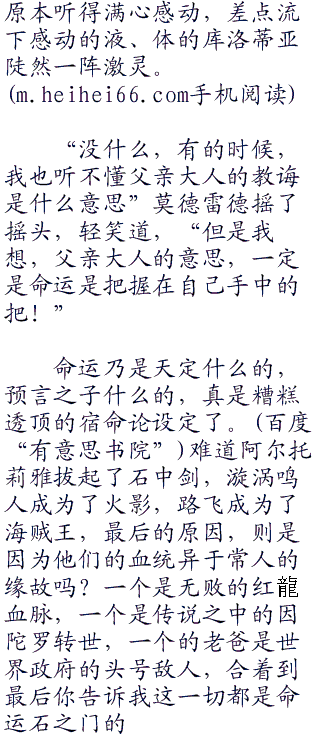 原本听得满心感动，差点流
下感动的液、体的库洛蒂亚
陡然一阵激灵。
(m.heihei66.com手机阅读)
“没什么，有的时候，
我也听不懂父亲大人的教诲
是什么意思”莫德雷德摇了
摇头，轻笑道，“但是我
想，父亲大人的意思，一定
是命运是把握在自己手中的
把！”
命运乃是天定什么的，
预言之子什么的，真是糟糕
透顶的宿命论设定了。(百度
“有意思书院”)难道阿尔托
莉雅拔起了石中剑，漩涡鸣
人成为了火影，路飞成为了
海贼王，最后的原因，则是
因为他们的血统异于常人的
缘故吗？一个是无败的红龍
血脉，一个是传说之中的因
陀罗转世，一个的老爸是世
界政府的头号敌人，合着到
最后你告诉我这一切都是命
运石之门的